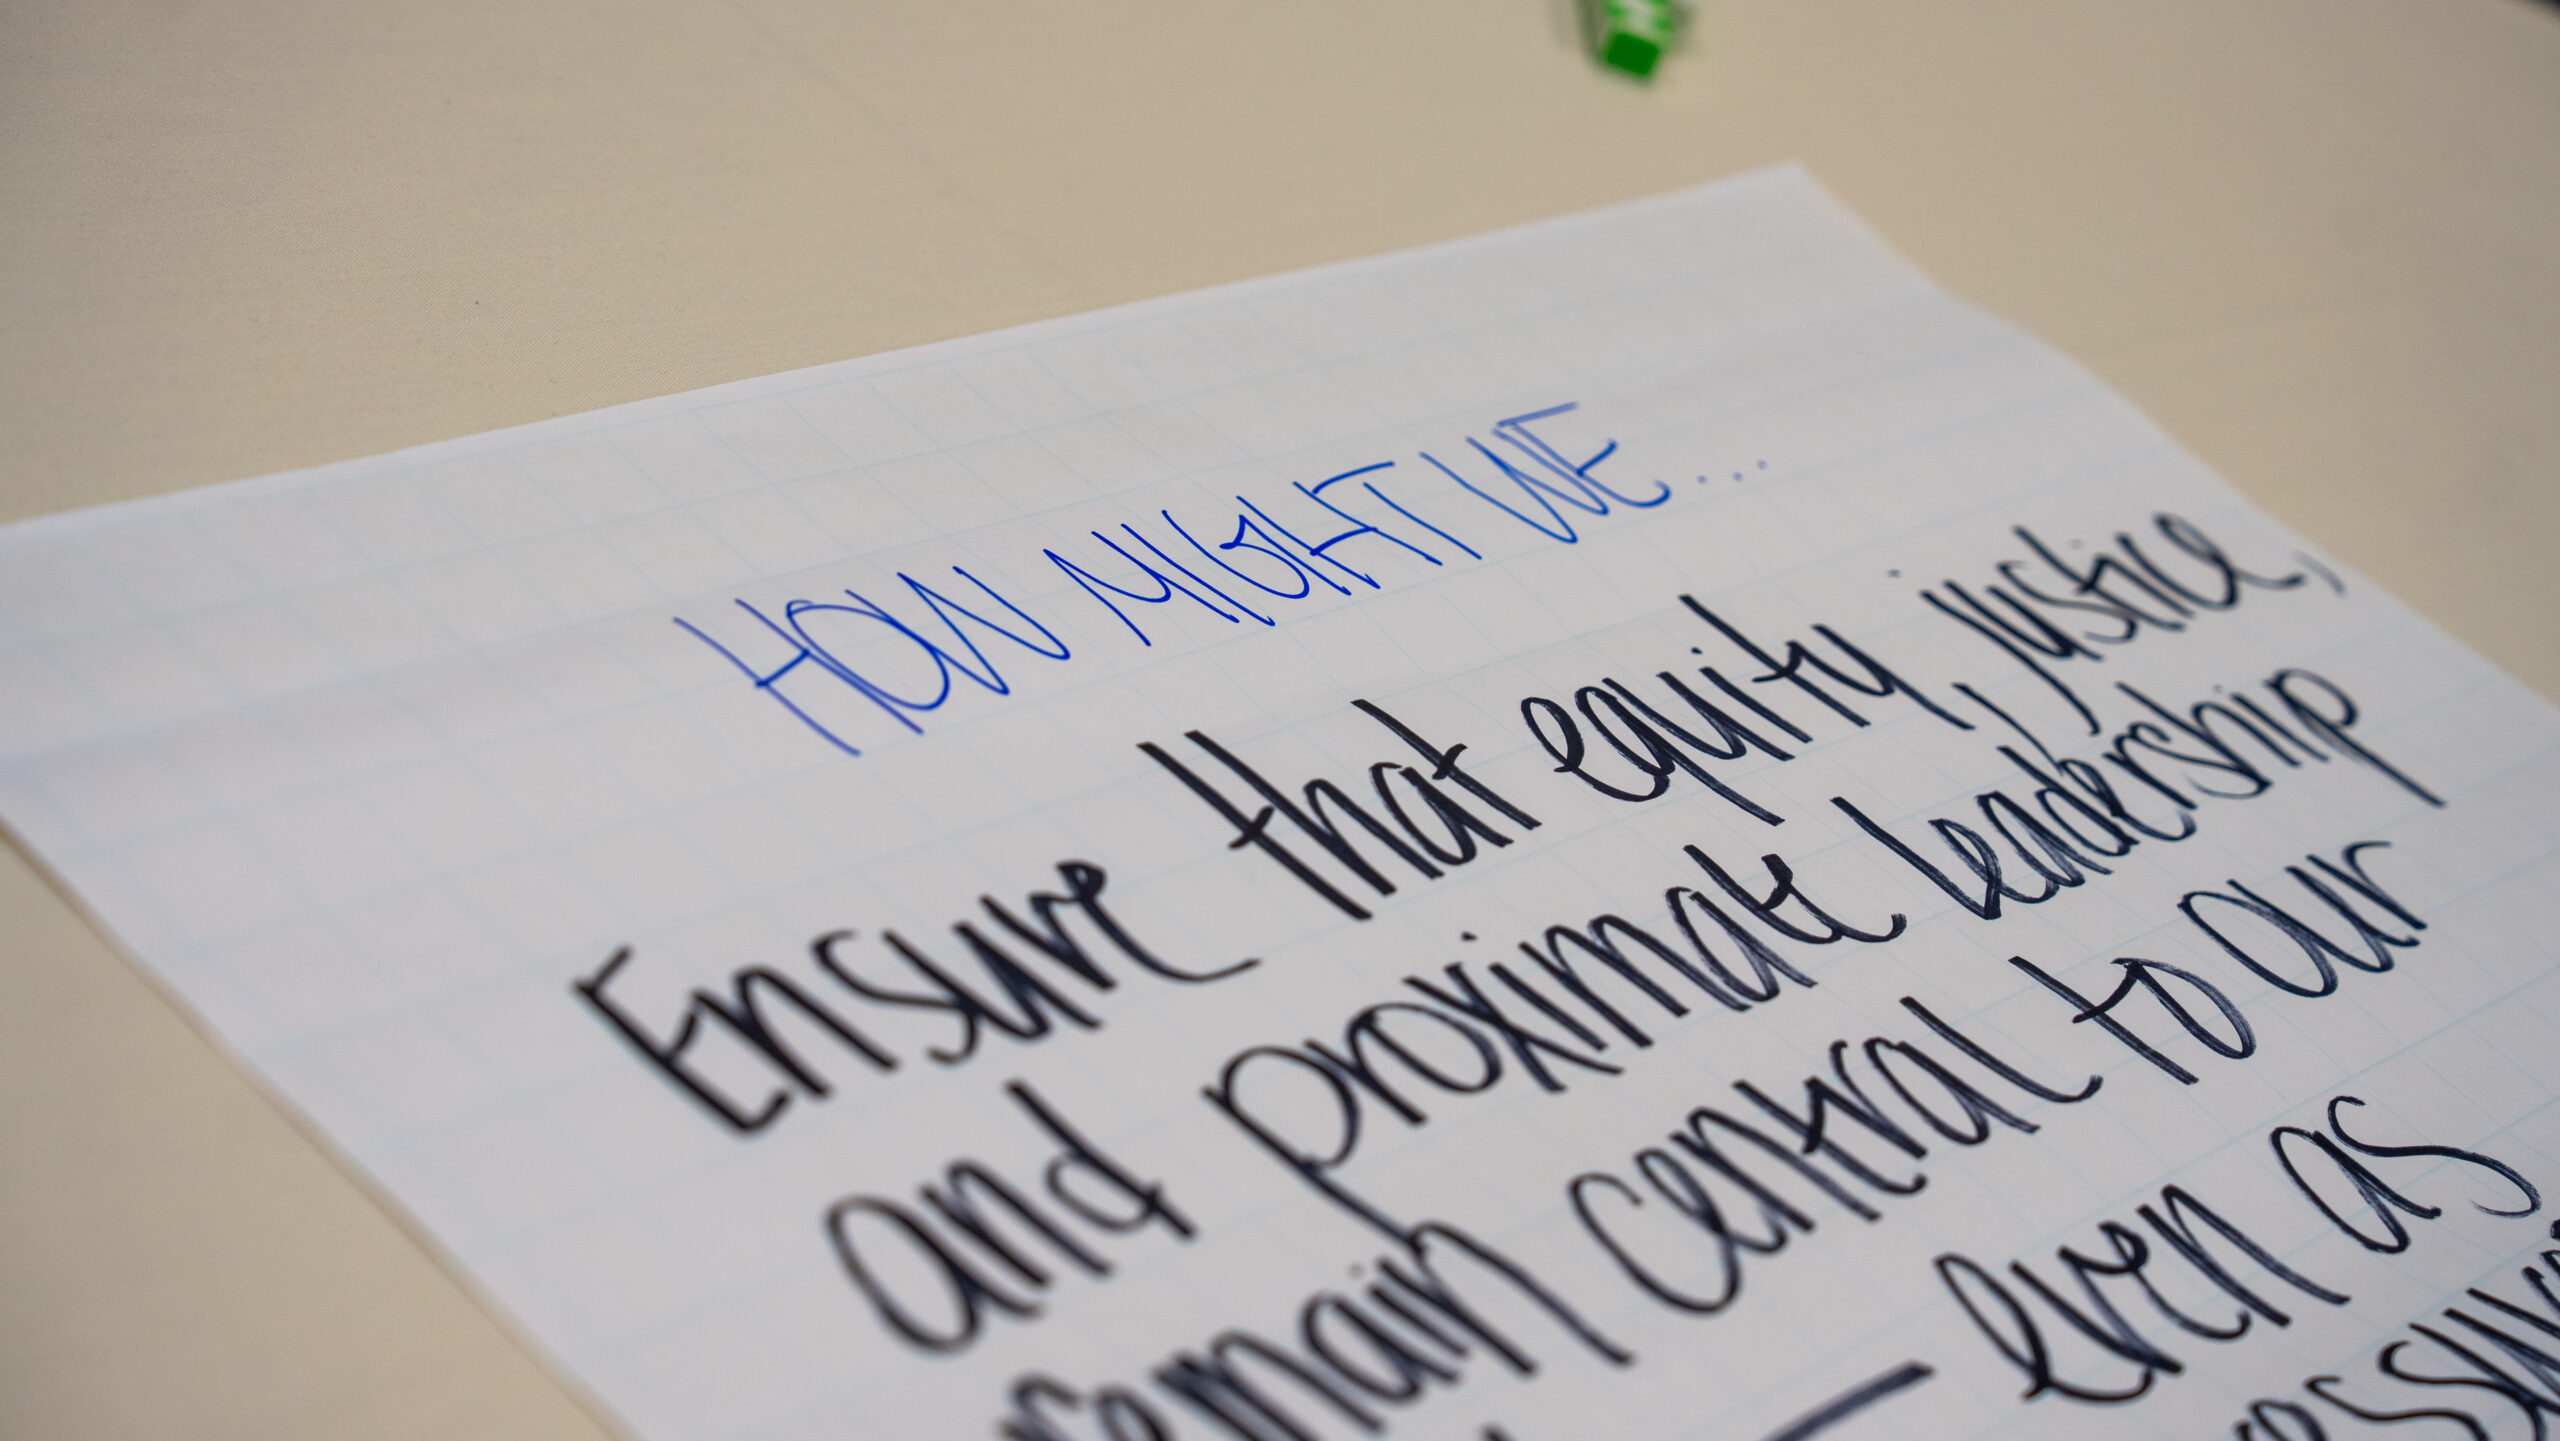 HOW MIGHT WE...
Ensure that equity, justice,
and proximate leadership
remain central to our
— even as